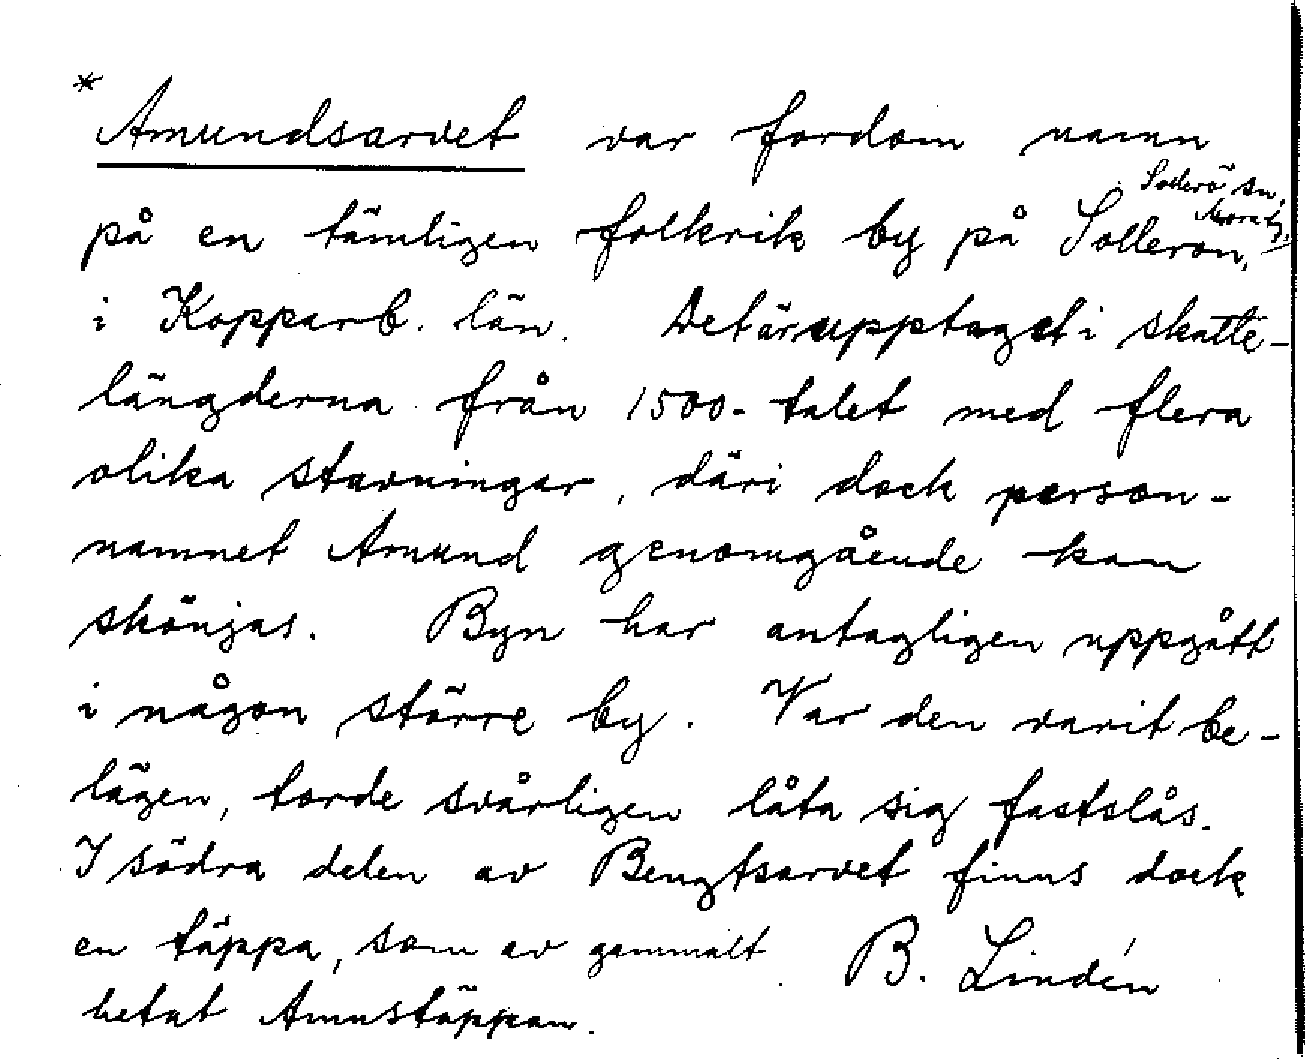 * Amundsarvet var fordom namn
Sollerö sn,
Mora tg,
på en tämligen folkrik by på Solleron,
i Kopparb. län. Det är upptaget i skatte-
längderna från 1500-talet med flera
olika stavningar, däri dock person-
namnet Amund genomgående kan
skönjas. Byn har antagligen uppgått
i någon större by. Var den varit be-
lägen, torde svårligen låta sig fastslås.
I södra delen av Bengtsarvet finns dock
en täppa, som av gammalt
hetat Amustäppan.
B. Lindén